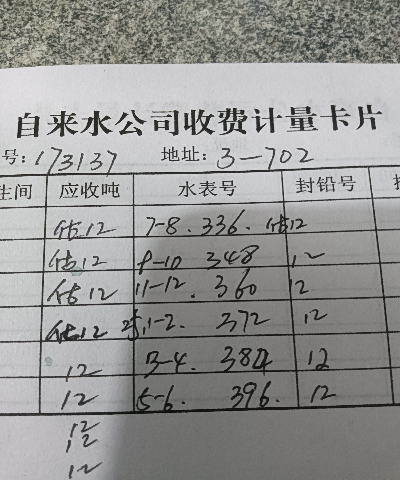 自来水公司收费计量卡片
号:173137 地址:3-702
生间 应收吨 水表号 封铅号
估12 7-8. 336. 估12
估12 9-10 348 12
估12 11-12. 360 12
估12 25,1-2. 372 12
12 3-4. 384 12
12 5-6. 396. 12
12
12
12